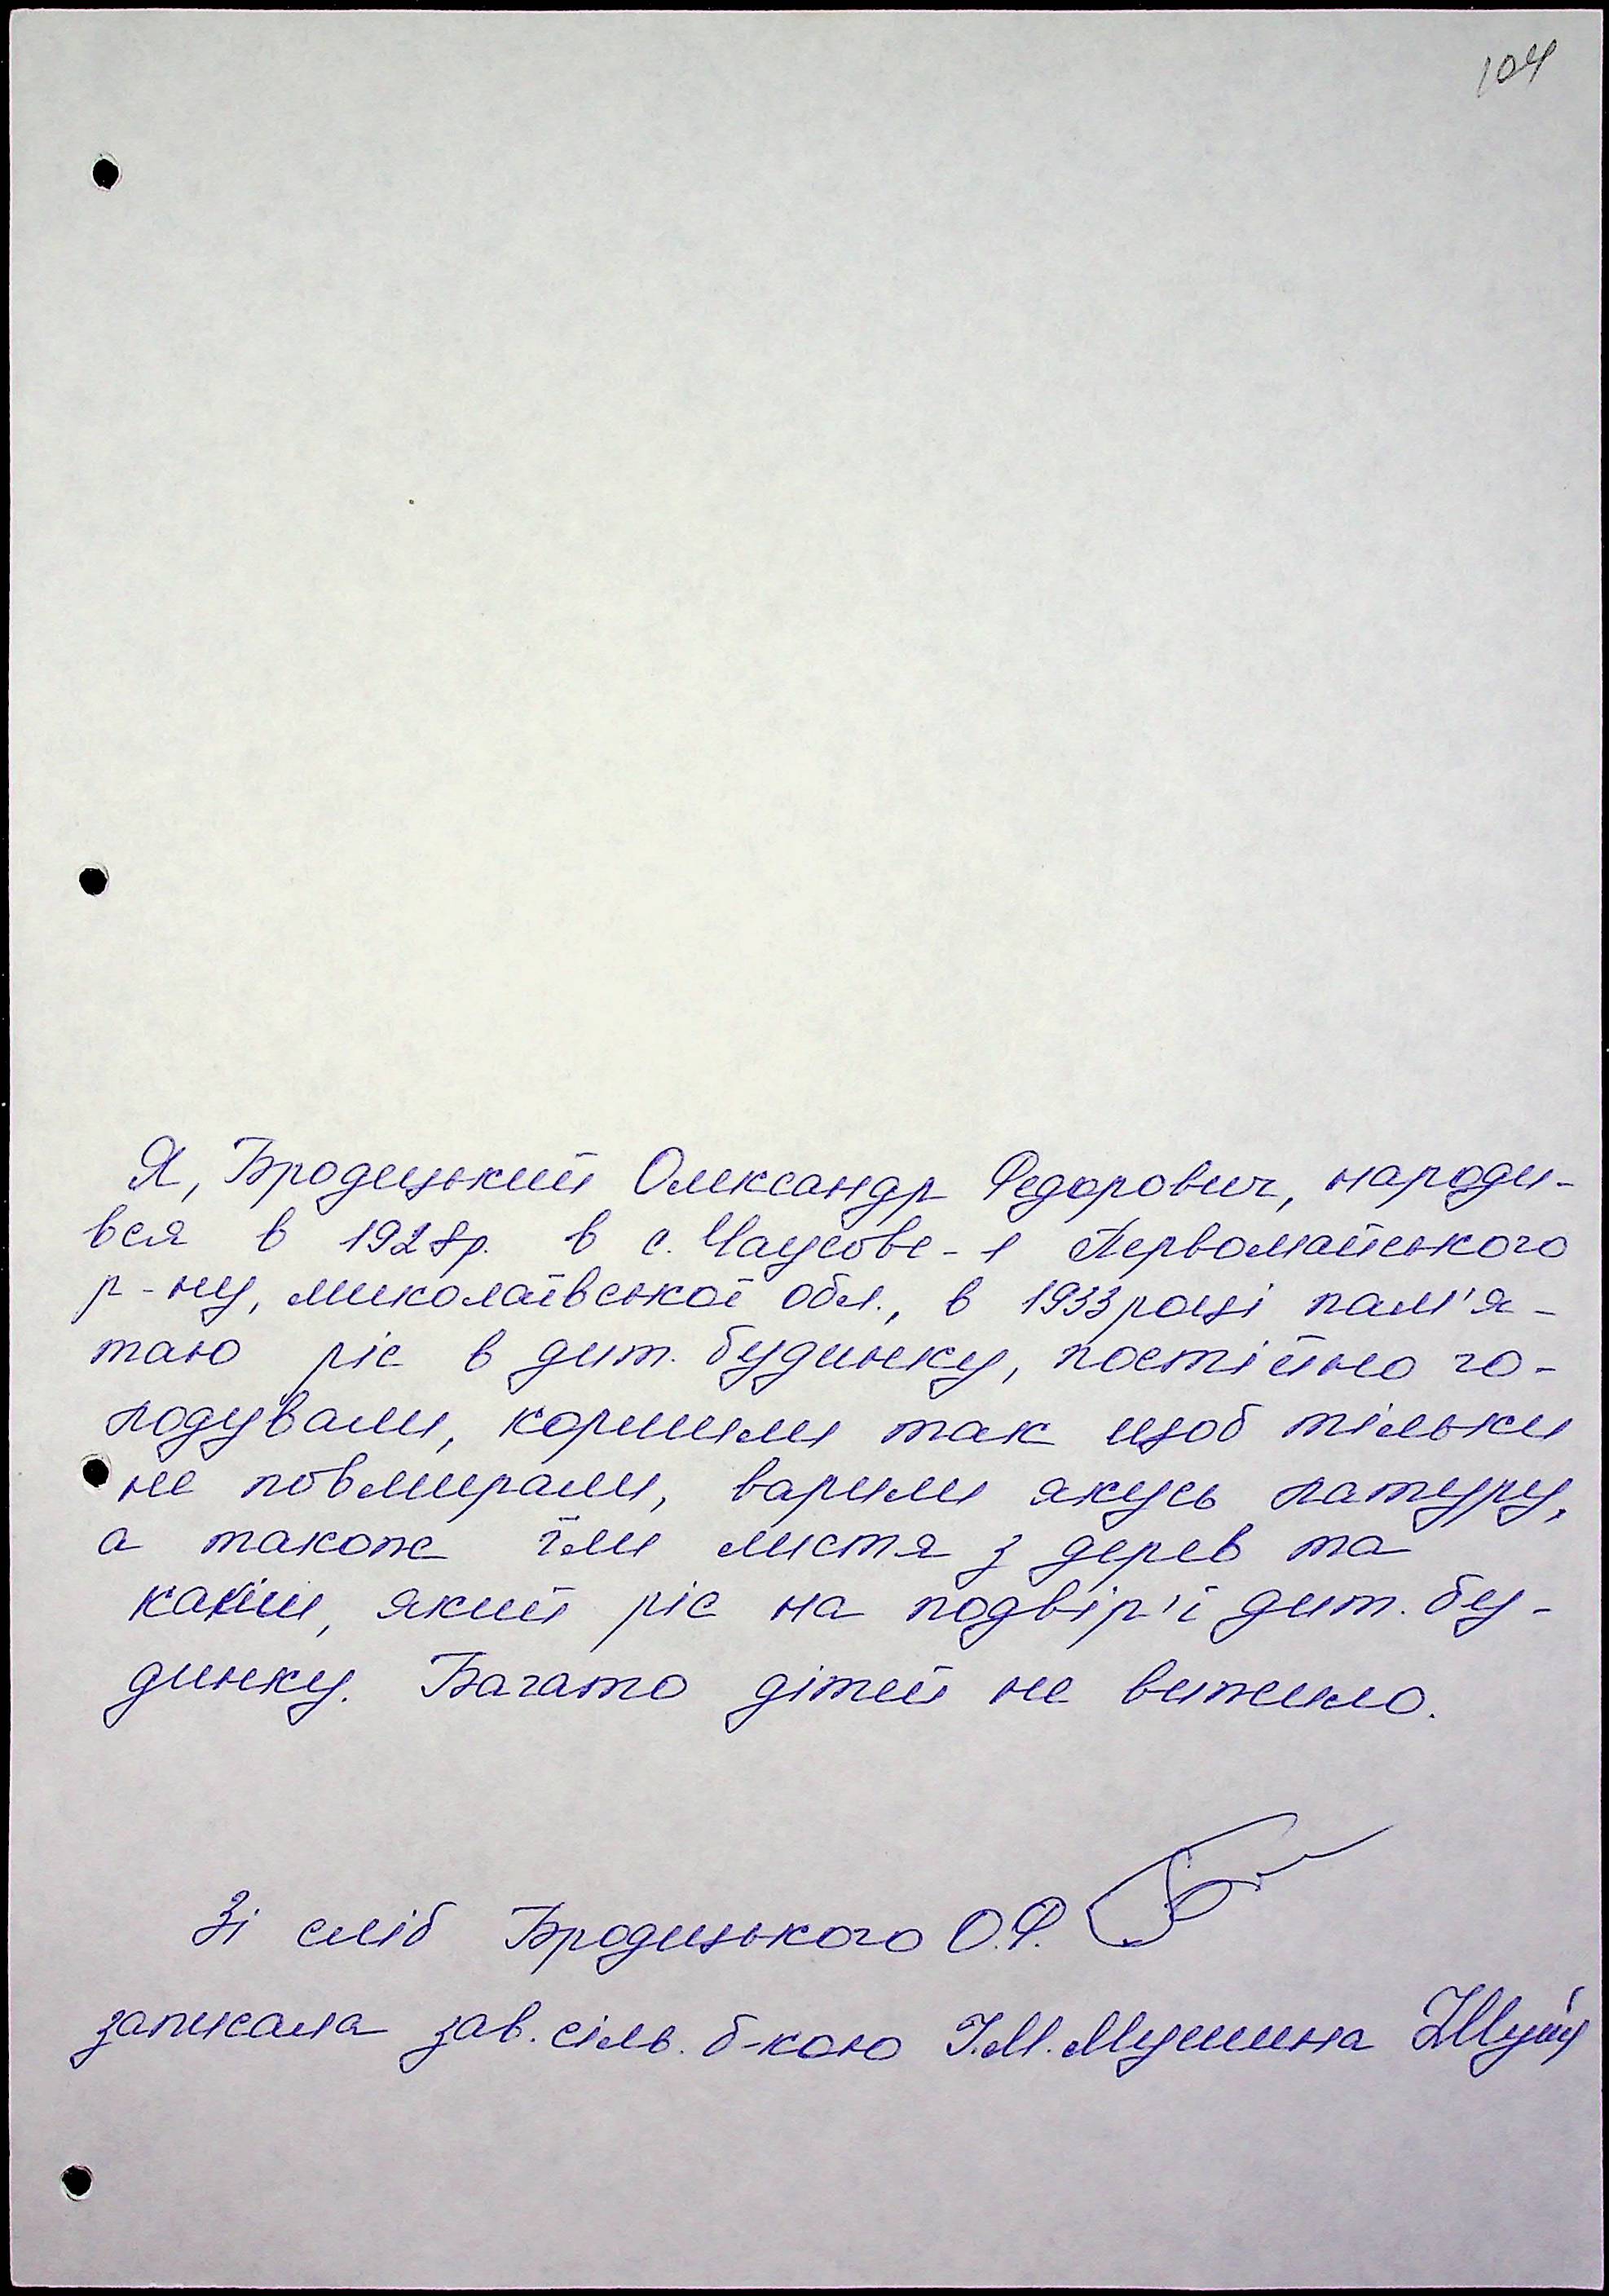 104
Я, Бродецький Олександр Федорович, народи-
вся в 1928р. в с. Чаусове-1 Первомайського
р-ну, миколаївської обл., в 1933році пам'я-
таю ріс в дит. будинку, постійно го-
лодували, кормили так щоб тільки
не повмирали, варили якусь латуру,
а також їли листя з дерев та
качим, який ріс на подвір'ї дит. бу-
динку. Багато дітей не вижило.
Зі слів Бродецького О.Ф.
записала зав. сіль. б-кою І.М. Мушина